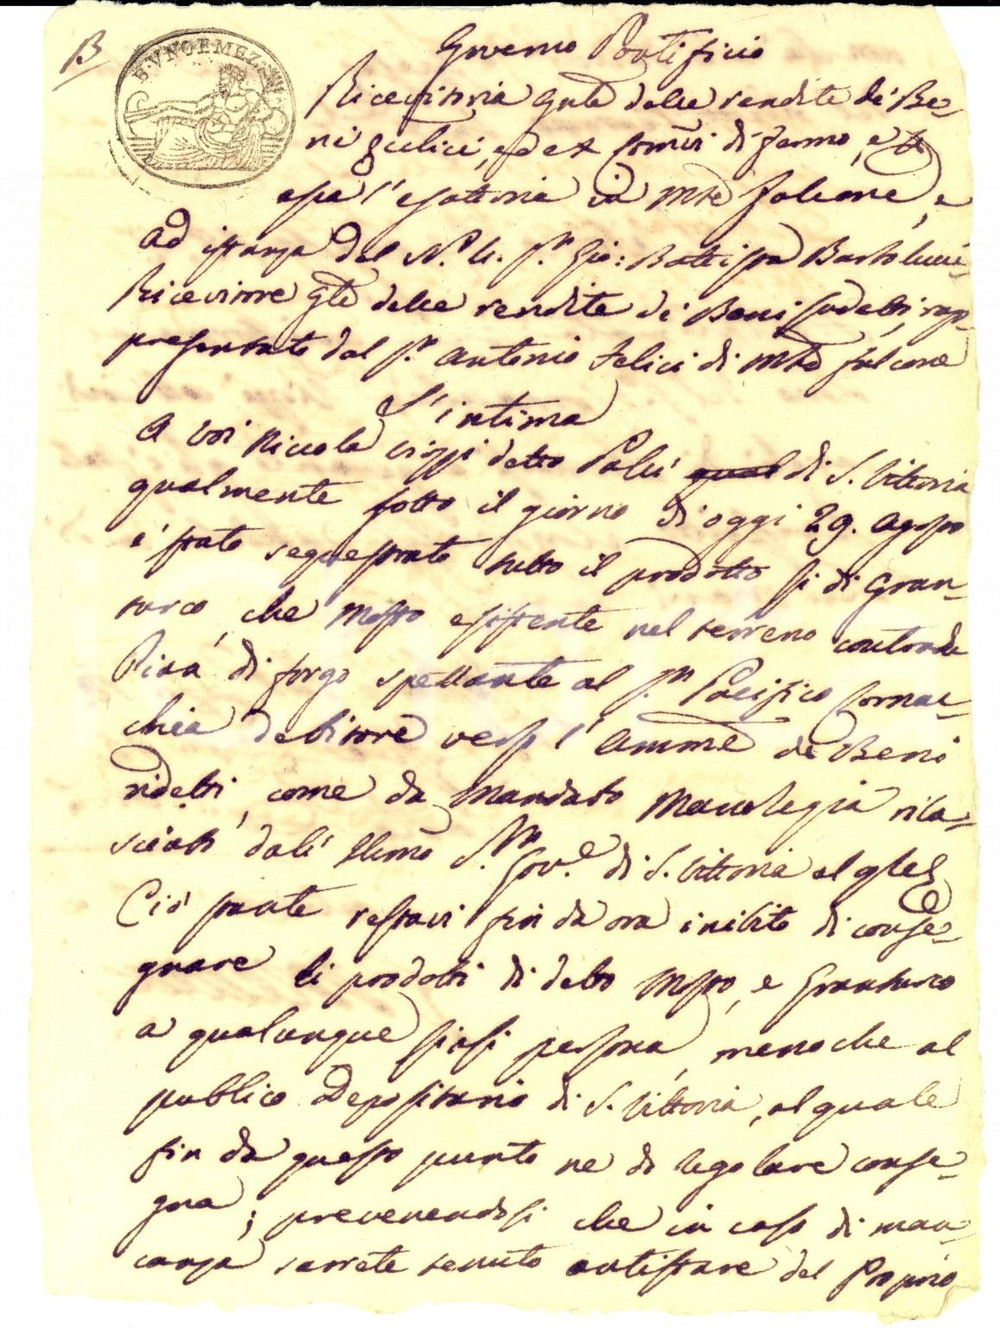 B
B. VN OE MEZ
Governo Pontificio
Ricevitoria Gnle delle rendite di Be-
ni Ecclici, ed ex di Fermo, e
essa l'esattoria in Mte Falcone, e
ad istanza del N. U. Sr Gio: Battista Bartolucci
Ricevitore Gle delle rendite di Beni sudetti, rap-
presentato dal Sr Antonio Felici di Mte Falcone
S'intima
A voi Niccola Vizzi detto di S. Vittoria
qualmente sotto il giorno di oggi 29. Agosto
è stato sequestrato tutto il prodotto si di Gran-
turco, che Mosto esistente nel terreno contrada
Pisà di Forgo spettante al Sr Pacifico Cornac-
chia debitore verso l'Ammne de Beni
ridetti, come da Mandato Manoregia rila-
sciato dall' Illmo Sr Gove di S. Vittoria al qle
Ciò stante restavi fin da ora inibito di conse-
gnare li prodotti di detto Mosto, e Granturco
a qualunque siasi persona, meno che al
publico Depositario di S. Vittoria, al quale
fin da questo punto ne di regolare conse-
gna; prevenendosi che in caso di man-
canza sarrete tenuto del Proprio